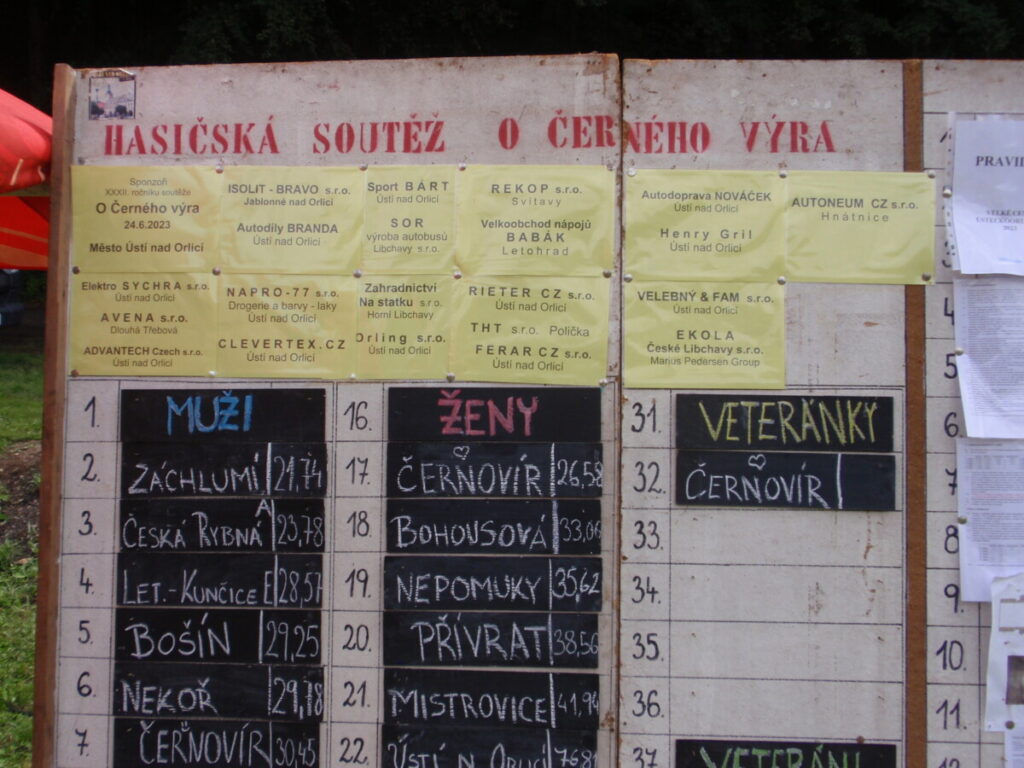 HASIČSKÁ SOUTĚŽ O ČERNÉHO VÝRA
Sponzoři
XXXII. ročníku soutěže
O Černého výra
24.6.2023
Město Ústí nad Orlicí
ISOLIT - BRAVO s.r.o.
Jablonné nad Orlicí
Autodíly BRANDA
Ústí nad Orlicí
Sport BÁRT
Ústí nad Orlicí
SOR
výroba autobusů
Libchavy s.r.o.
REKOP s.r.o.
Svitavy
Velkoobchod nápojů
BABÁK
Letohrad
Autodoprava NOVÁČEK
Ústí nad Orlicí
Henry Gril
Ústí nad Orlicí
AUTONEUM CZ s.r.o.
Hnátnice
Elektro SYCHRA s.r.o.
Ústí nad Orlicí
AVENA s.r.o.
Dlouhá Třebová
ADVANTECH Czech s.r.o.
Ústí nad Orlicí
NAPRO-77 s.r.o.
Drogerie a barvy - laky
Ústí nad Orlicí
CLEVERTEX.CZ
Zahradnictví
Na statku s.r.o.
Horní Libchavy
Orling s.r.o.
Ústí nad Orlicí
RIETER CZ s.r.o.
Ústí nad Orlicí
THT s.r.o. Polička
FERAR CZ s.r.o.
Ústí nad Orlicí
VELEBNÝ & FAM s.r.o.
Ústí nad Orlicí
EKOLA
České Libchavy s.r.o.
Marius Pedersen Group
1. MUŽI
2. ZÁCHLUMÍ 21,74
3. ČESKÁ RYBNÁ A 23,78
4. LET.-KUNČICE E 28,57
5. BOŠÍN 29,25
6. NEKOŘ 29,78
7. ČERNOVÍR 30,45
16. ŽENY
17. ČERNOVÍR 26,58
18. BOHOUSOVÁ 33,06
19. NEPOMUKY 35,62
20. PŘÍVRAT 38,56
21. MISTROVICE 41,94
22. ÚSTÍ N. ORLICÍ
31. VETERÁNKY
32. ČERNOVÍR
33.
34.
35.
36.
37. VETERÁNI
PRAVID
4
5
6.
7
8
9.
10.
11.